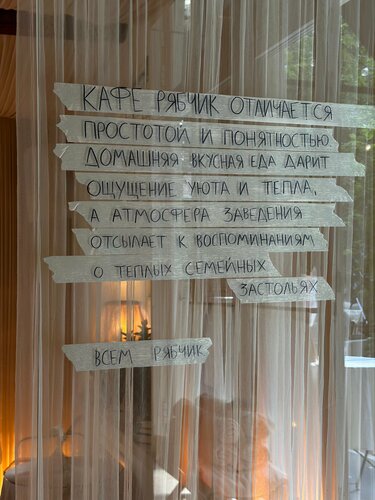 КАФЕ РЯБЧИК ОТЛИЧАЕТСЯ
ПРОСТОТОЙ И ПОНЯТНОСТЬЮ
ДОМАШНЯЯ ВКУСНАЯ ЕДА ДАРИТ
ОЩУЩЕНИЕ УЮТА И ТЕПЛА,
А АТМОСФЕРА ЗАВЕДЕНИЯ
ОТСЫЛАЕТ К ВОСПОМИНАНИЯМ
О ТЕПЛЫХ СЕМЕЙНЫХ
ЗАСТОЛЬЯХ
ВСЕМ РЯБЧИК